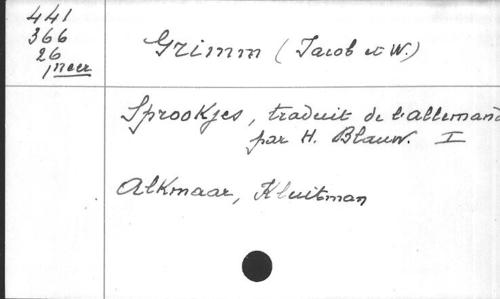 441
366
26
Grimm (Jacob et W.)
Sprookjes, traduit de l'allemand
par H. Blauw. I
Alkmaar, Kluitman